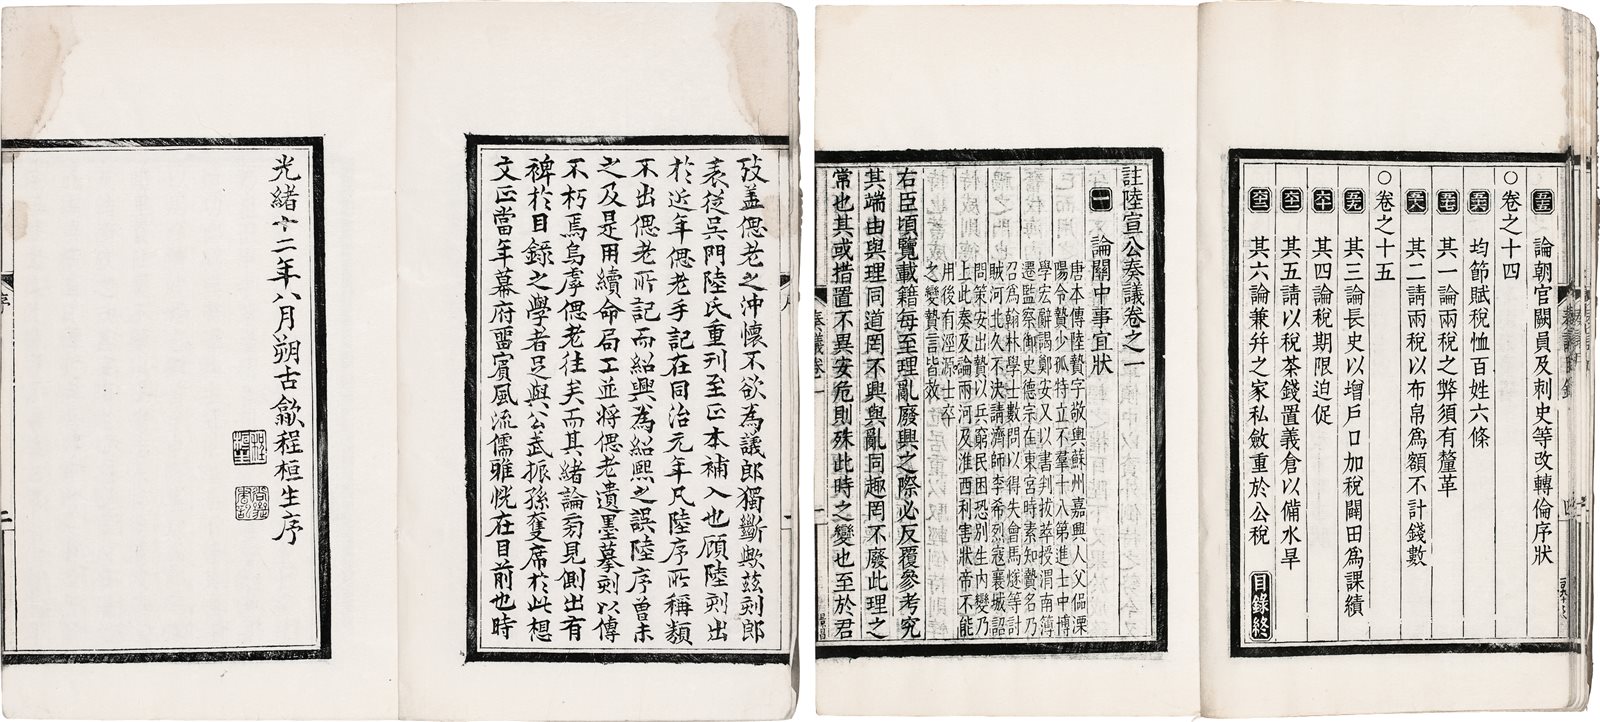 攷蓋偲老之沖懷不欲為議郎獨斷歟茲刻郎
表從吳門陸氏重刊至正本補入也顧陸刻出
於近年偲老手記在同治元年凡陸序所稱類
不出偲老所記而紹興為紹熙之誤陸序曾未
之及是用續命局工並將偲老遺墨摹刻以傳
不朽焉烏虖偲老往矣而其緒論旁見側出有
裨於目錄之學者足與公武振孫奪席於此想
文正當年幕府畱賓風流儒雅恍在目前也時
光緒十二年八月朔古歙程桓生序
論朝官闕員及刺史等改轉倫序狀
○卷之十四
均節賦稅恤百姓六條
其一論兩稅之弊須有釐革
其二請兩稅以布帛爲額不計錢數
其三論長史以增戶口加稅闢田爲課績
○卷之十五
其四論稅期限迫促
其五請以稅茶錢置義倉以備水旱
其六論兼幷之家私斂重於公稅
目錄終
註陸宣公奏議卷之一
一 論關中事宜狀
唐本傳陸贄字敬輿蘇州嘉興人父偘溧
陽令贄少孤特立不羣十八第進士中博
學宏辭調鄭安又以書判拔萃授渭南簿
遷監察御史德宗在東宮時素知贄名乃
召爲翰林學士數問以得失會馬燧等討
賊河北久不決請濟師李希烈寇襄城詔
問策安出贄以兵窮民困恐別生內變乃
上此奏及論兩河及淮西利害狀帝不能
用後有涇源士卒
之變贄言皆效
右臣頃覽載籍每至理亂廢興之際必反覆參考究
其端由與理同道罔不興與亂同趣罔不廢此理之
常也其或措置不異安危則殊此時之變也至於君